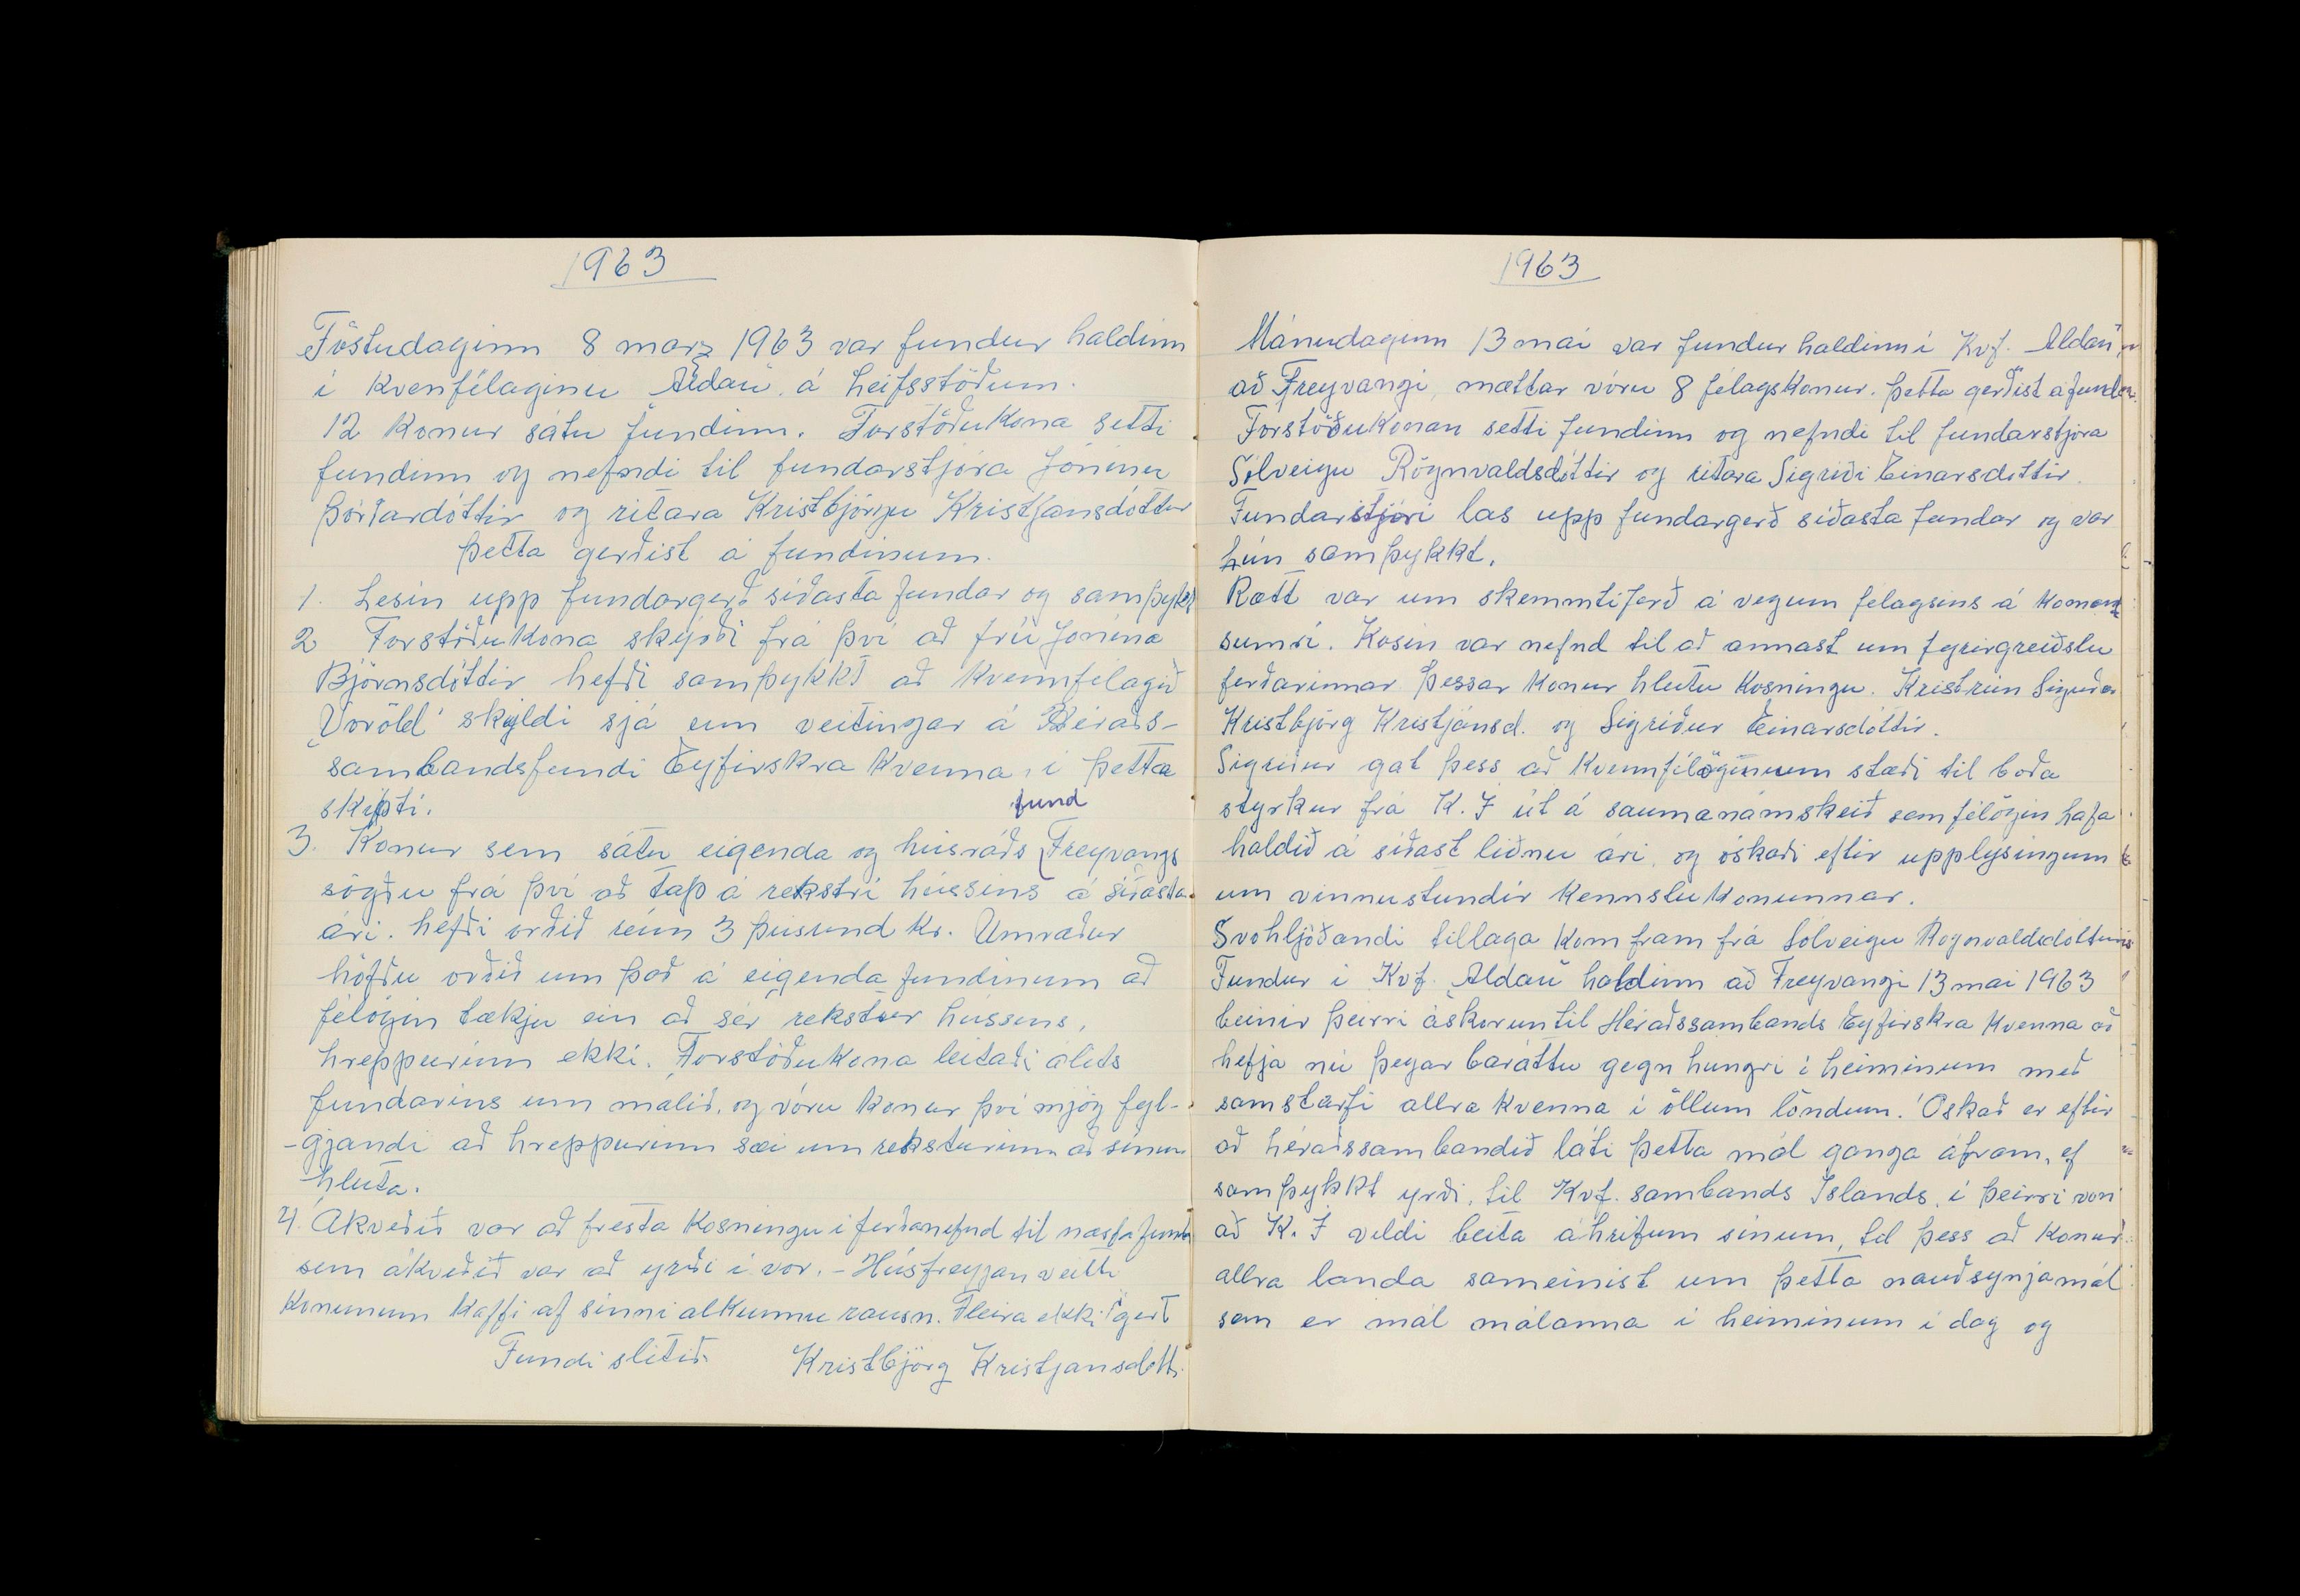 1963
Föstudaginn 8 marz 1963 var fundur haldinn
í Kvenfélaginu "Aldan" á Leifsstöðum.
12 Konur sátu fundinn. Forstöðukona setti
fundinn og nefndi til fundarstjóra Jónínu
Þórðardóttir og ritara Kristbjörgu Kristjansdóttur
Þetta gerðist á fundinum.
1. Lesin upp fundargerð síðasta fundar og samþykkt
2 Forstöðukona skýrði frá því að frú Jónína
Björnsdóttir hefði samþykkt að Kvennfélagið
"Voröld" skyldi sjá um veitingar á Héraðs-
sambandsfundi Eyfirskra Kvenna, í þetta
skipti.
3. Konur sem sátu eigenda og húsráðs fund Freyvangs
sögðu frá því að tap á rekstri hússins á síðasta
ári. hefði orðið rúm 3 þúsund kr. Umræður
höfðu orðið um það á eigenda fundinum að
félögin tækju ein að sér rekstur hússins,
hreppurinn ekki. Forstöðukona leitaði álits
fundarins um málið, og vóru konur því mjög fyl-
-gjandi að hreppurinn sæi um reksturinn að sínum
hluta.
4. Akveðið var að fresta Kosningu i ferðanefnd til næsta fundar
sem ákveðið var að yrði í vor. - Húsfreyjan veitti
Konunum Kaffi af sinni alkunnu rausn. Fleira ekki gert
Fundi slitið. Kristbjörg Kristjansdótt.
1963
Mánudaginn 13 mai var fundur haldinn í Kvf. "Aldan"
að Freyvangi, mættar vóru 8 félagskonur. Þetta gerðist á fundin
Forstöðukonan setti fundinn og nefndi til fundarstjóra
Sólveigu Rögnvaldsdóttir og ritara Sigriði Einarsdóttir.
Fundarstjóri las upp fundargerð síðasta fundar og var
hún samþykkt.
Rætt var um skemmtiferð á vegum félagsins á komandi
sumri. Kosin var nefnd til að annast um fyrirgreiðslu
ferðarinnar Þessar Konur hlutu Kosningu. Kristrún Sigurðar
Kristbjörg Kristjánsd. og Sigríður Einarsdóttir.
Sigríður gat þess að Kvennfélögunum stæði til boða
styrkur frá K.Í út á saumanámskeið sem félögin hafa
haldið á síðast liðnu ári, og óskaði eftir upplýsingum
um vinnustundir Kennslukonunnar.
Svohljóðandi tillaga Kom fram frá Sólveigu Rögnvaldsdóttur
Fundur í Kvf. "Aldan" haldinn að Freyvangi 13 mai 1963
beinir þeirri áskorun til Héraðssambands Eyfirskra Kvenna að
hefja nú þegar baráttu gegn hungri í heiminum með
samstarfi allra Kvenna í öllum löndum. Óskað er eftir
að héraðssambandið láti þetta mál ganga áfram, ef
samþykkt yrði, til Kvf. sambands Íslands, í þeirri von
að K.Í vildi beita áhrifum sínum, til þess að Konur
allra landa sameinist um þetta nauðsynjamál
sem er mál málanna í heiminum í dag og